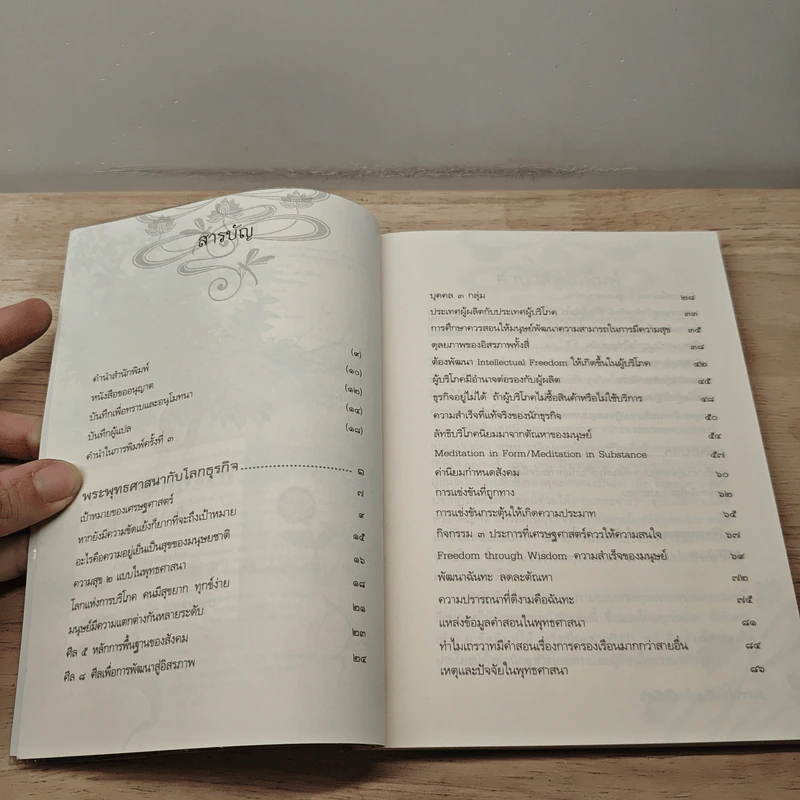 สารบัญ
คำนำสำนักพิมพ์ (๙)
หนังสือขออนุญาต (๑๐)
บันทึกเพื่อทราบและอนุโมทนา (๑๒)
บันทึกผู้แปล (๑๔)
คำนำในการพิมพ์ครั้งที่ ๓ (๑๘)
พระพุทธศาสนากับโลกธุรกิจ ๑
เป้าหมายของเศรษฐศาสตร์ ๗
หากยังมีความขัดแย้งก็ยากที่จะถึงเป้าหมาย ๙
อะไรคือความอยู่เย็นเป็นสุขของมนุษยชาติ ๑๕
ความสุข ๒ แบบในพุทธศาสนา ๑๖
โลกแห่งการบริโภค คนมีสุขยาก ทุกข์ง่าย ๑๘
มนุษย์มีความแตกต่างกันหลายระดับ ๒๑
ศีล ๕ หลักการพื้นฐานของสังคม ๒๓
ศีล ๘ ศีลเพื่อการพัฒนาสู่อิสรภาพ ๒๔
บุคคล ๓ กลุ่ม ๒๘
ประเทศผู้ผลิตกับประเทศผู้บริโภค ๓๓
การศึกษาควรสอนให้มนุษย์พัฒนาความสามารถในการมีความสุข ๓๕
ดุลยภาพของอิสรภาพทั้งสี่ ๓๘
ต้องพัฒนา Intellectual Freedom ให้เกิดขึ้นในผู้บริโภค ๔๒
ผู้บริโภคมีอำนาจต่อรองกับผู้ผลิต ๔๕
ธุรกิจอยู่ไม่ได้ ถ้าผู้บริโภคไม่ซื้อสินค้าหรือไม่ใช้บริการ ๔๘
ความสำเร็จที่แท้จริงของนักธุรกิจ ๕๐
ลัทธิบริโภคนิยมมาจากตัณหาของมนุษย์ ๕๔
Meditation in Form/Meditation in Substance ๕๗
ค่านิยมกำหนดสังคม ๖๐
การแข่งขันที่ถูกทาง ๖๒
การแข่งขันกระตุ้นให้เกิดความประมาท ๖๕
กิจกรรม ๓ ประการที่เศรษฐศาสตร์ควรให้ความสนใจ ๖๗
Freedom through Wisdom ความสำเร็จของมนุษย์ ๖๙
พัฒนาฉันทะ ลดละตัณหา ๗๒
ความปรารถนาที่ดีงามคือฉันทะ ๗๕
แหล่งข้อมูลคำสอนในพุทธศาสนา ๘๑
ทำไมเถรวาทมีคำสอนเรื่องการครองเรือนมากกว่าสายอื่น ๘๔
เหตุและปัจจัยในพุทธศาสนา ๘๖